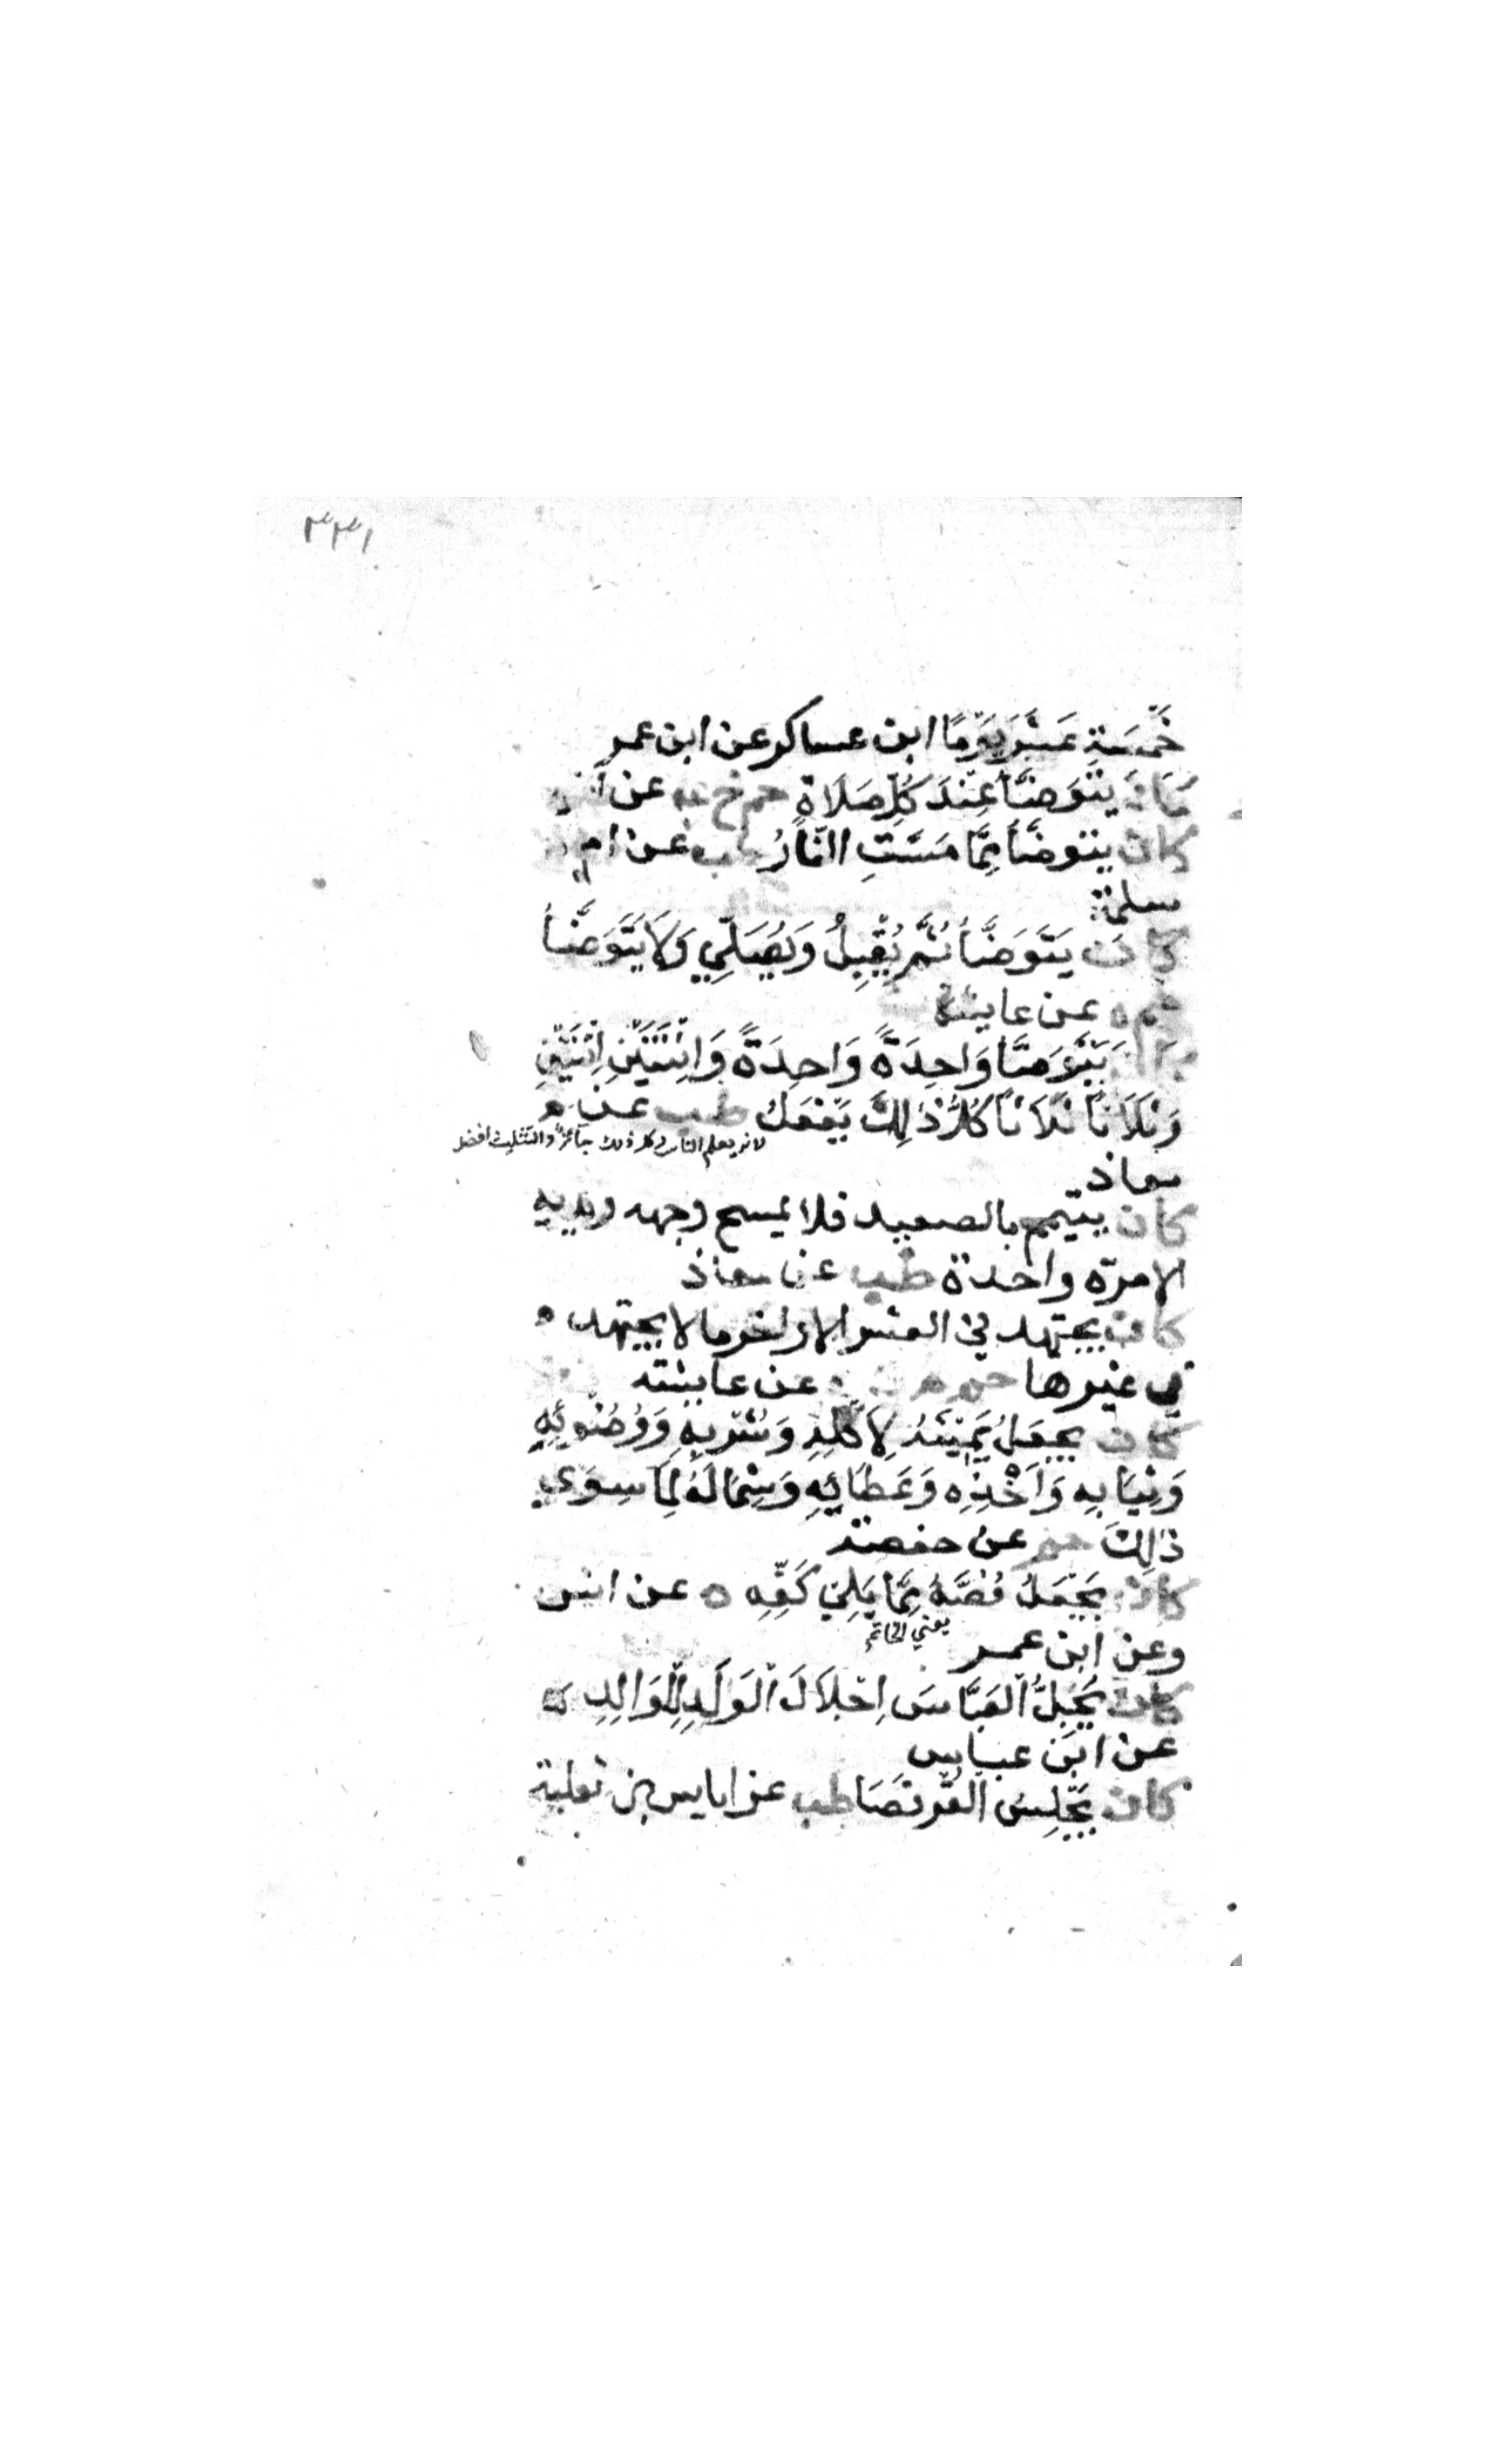 ٣٣١
خَمْسَةِ عَشَرَ يَوْمًا ابن عساكر عن ابن عمر
كان يتوَضَّأُ عِنْدَ كُلِّ صَلَاة حم خ عن
كان يتوضَّأُ مِمَّا مَسَّتِ النَّارُ طب عن ام
سلمة
كان يَتَوَضَّأُ ثُمَّ يُقَبِّلُ وَيُصَلِّي وَلَا يَتَوَضَّأُ
حم ه عن عايشة
كان يَتَوَضَّأُ وَاحِدَةً وَاحِدَةً وَاثْنَتَيْنِ اثْنَتَيْنِ
وَثَلَاثًا ثَلَاثًا كُلُّ ذٰلِكَ يَفْعَلُ طب عن
لانه يعلم الناس وكل ذلك جائز والتثليث افضل
معاذ
كان يتيمم بالصعيد فلا يمسح وجهه ويديه
الا مرة واحدة طب عن معاذ
كان يجتهد في العشر الاواخر ما لا يجتهد
في غيرها حم م عن عايشه
كان يجعَلُ يَمِينَهُ لِأَكْلِهِ وَشُرْبِهِ وَوُضُوئِهِ
وَثِيَابِهِ وَأَخْذِهِ وَعَطَائِهِ وَشِمَالَهُ لِمَا سِوَى
ذٰلِكَ حم عن حفصة
كان يَجْعَلُ فُصَّهُ مِمَّا يَلِي كَفِّه ه عن انس
يعني الخاتم
وعن ابن عمر
كان يُجِلُّ الْعَبَّاسَ اِجْلَالَ الْوَلَدِ لِلْوَالِدِ ك
عن ابن عباس
كان يَجْلِسُ القُرْفُصَا طب عن اياس بن ثعلبة